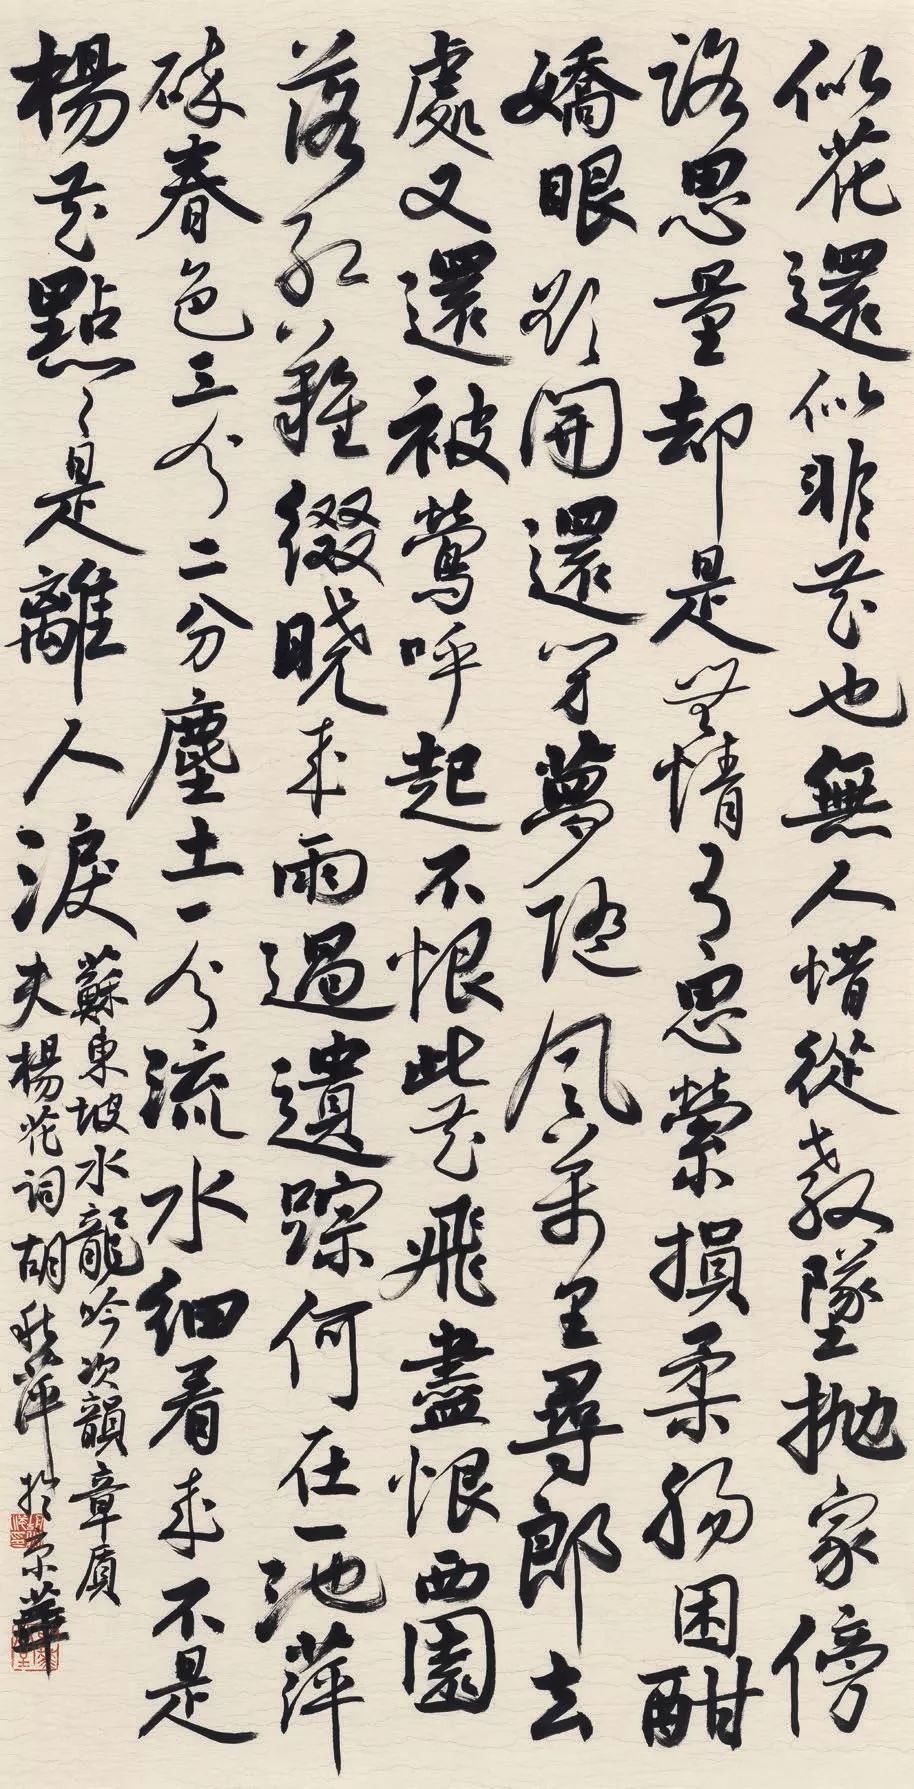 似花還似非花也無人惜從教墜拋家傍
路思量却是無情有思縈損柔腸困酣
嬌眼欲開還閉夢隨風萬里尋郎去
處又還被鶯呼起不恨此花飛盡恨西園
落紅難綴曉來雨過遺踪何在一池萍
碎春色三分二分塵土一分流水細看來不是
楊花點〻是離人淚
蘇東坡水龍吟次韻章質
夫楊花詞胡秋萍於京華